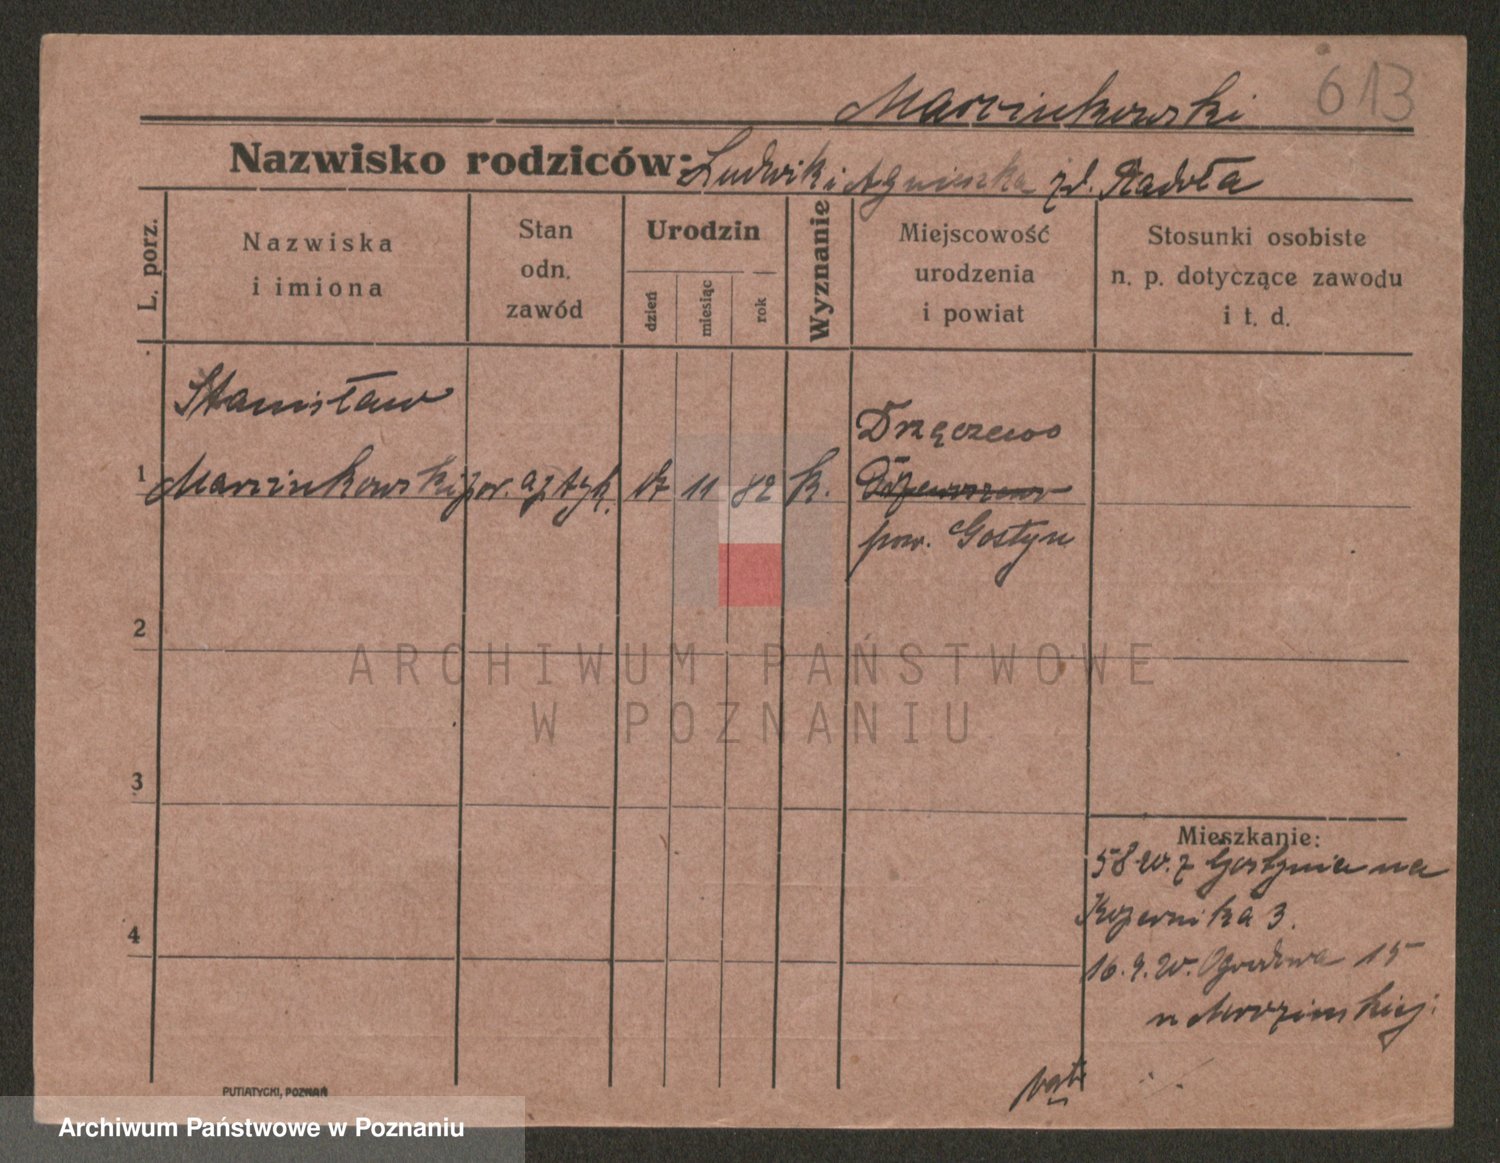 613
Marcinkowski
Nazwisko rodziców: Ludwik i Agnieszka zd. Radoła
L. porz.
Nazwiska
i imiona
Stan
odn.
zawód
Urodzin
dzień
miesiąc
rok
Wyznanie
Miejscowość
urodzenia
i powiat
Stosunki osobiste
n. p. dotyczące zawodu
i t. d.
Stanisław
Drzęczewo
1 Marcinkowski 11 82 k.
pow. Gostyn
2
ARCHIWUM PAŃSTWOWE
W POZNANIU
3
Mieszkanie:
z Gostynia na
Kopernika 3.
4
16.9.20. Ogrodowa 15
PUTIATYCKI, POZNAŃ
Archiwum Państwowe w Poznaniu